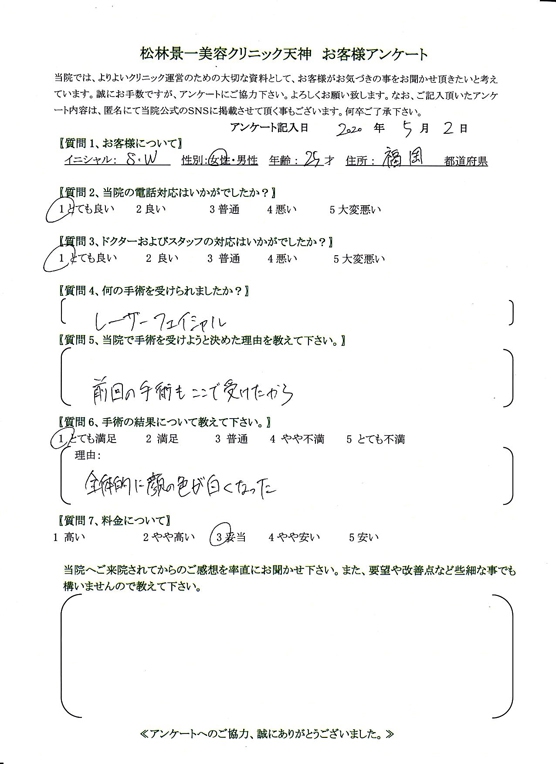 松林景一美容クリニック天神　お客様アンケート
当院では、よりよいクリニック運営のための大切な資料として、お客様がお気づきの事をお聞かせ頂きたいと考え
ています。誠にお手数ですが、アンケートにご協力下さい。よろしくお願い致します。なお、ご記入頂いたアンケ
ート内容は、匿名にて当院公式のSNSに掲載させて頂く事もございます。何卒ご了承下さい。
アンケート記入日　2020 年 5 月 2 日
〖質問1、お客様について〗
イニシャル： S・W　性別:女性・男性　年齢：25才　住所：福岡　都道府県
〖質問2、当院の電話対応はいかがでしたか？〗
1とても良い　2 良い　3 普通　4 悪い　5 大変悪い
〖質問3、ドクターおよびスタッフの対応はいかがでしたか？〗
1とても良い　2 良い　3 普通　4 悪い　5 大変悪い
〖質問4、何の手術を受けられましたか？〗
レーザーフェイシャル
〖質問5、当院で手術を受けようと決めた理由を教えて下さい。〗
前回の手術もここで受けたから
〖質問6、手術の結果について教えて下さい。〗
1とても満足　2 満足　3 普通　4 やや不満　5 とても不満
理由：
全体的に顔の色が白くなった
〖質問7、料金について〗
1 高い　2 やや高い　3 妥当　4 やや安い　5 安い
当院へご来院されてからのご感想を率直にお聞かせ下さい。また、要望や改善点など些細な事でも
構いませんので教えて下さい。
≪アンケートへのご協力、誠にありがとうございました。≫